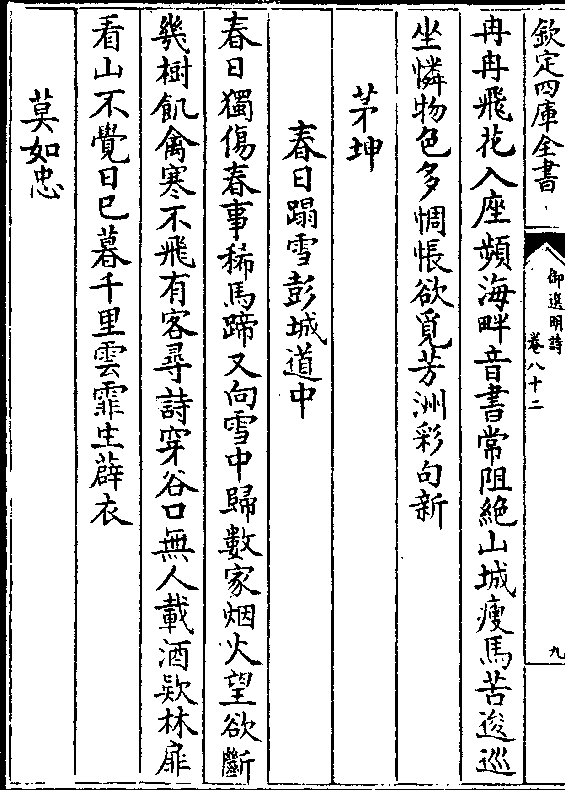 欽定四庫全書
御選明詩
卷八十二
九
冉冉飛花入座頻海畔音書常阻絶山城瘦馬苦逡巡
坐憐物色多惆悵欲覓芳洲彩句新
茅坤
春日蹋雪彭城道中
春日獨傷春事稀馬蹄又向雪中歸數家烟火望欲斷
幾樹飢禽寒不飛有客尋詩穿谷口無人載酒欵林扉
看山不覺日已暮千里雲霏生薜衣
莫如忠